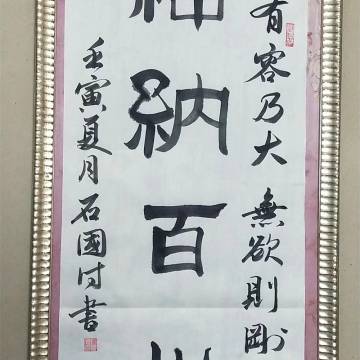 有容乃大 無欲則剛
納百
壬寅夏月石國付書